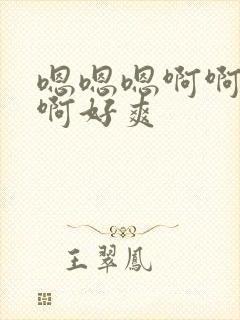 嗯嗯嗯啊啊
啊好爽
王翠鳳